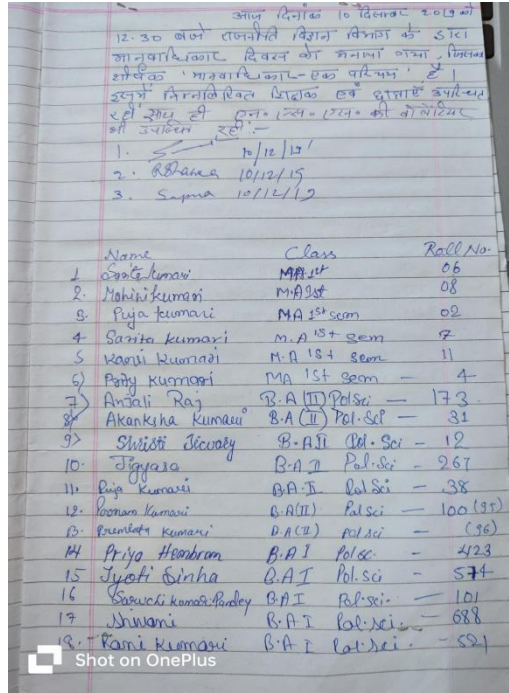 आज दिनांक 10 दिसम्बर 2019 को
12.30 बजे राजनीति विज्ञान विभाग के द्वारा
मानवाधिकार दिवस को मनाया गया, जिसका
शीर्षक 'मानवाधिकार - एक परिचय' है।
इसमें निम्नलिखित शिक्षक एवं छात्राएँ उपस्थित
रहीं साथ ही एन॰ एस॰ एस॰ की वोलेंटियर
भी उपस्थित रहीं :-
1. 10/12/19
2. 10/12/19
3. Sapna 10/12/19
Name Class Roll No.
1 kumari MA 1st 06
2. Mohini kumari M.A 1st 08
3. Puja kumari MA 1st sem 02
4 Sarita kumari M.A 1st sem 7
5 Kumari M.A 1st sem 11
6) kumari MA 1st sem - 4
7) Anjali Raj B.A (II) Pol Sci - 173
8) Akanksha Kumari B.A (II) Pol. Sci - 31
9) Shristi Tiwary B.A II Pol. Sci - 12
10. Jigyasa B.A II Pol. Sci - 267
11. Puja Kumari B.A. II Pol Sci - 38
12. Poonam Kumari B.A (II) Pol sci - 100 (95)
13. Premlata kumari B.A (II) Pol sci - (96)
14 Priya Hembram B.A I Pol sc. - 423
15 Jyoti Sinha B.A I Pol. sci - 574
16 Kumari Pandey B.A I Pol. sci. - 101
17 Shivani B.A I Pol. sci. - 688
18. Rani kumari B.A I Pol. sci. - 521
Shot on OnePlus